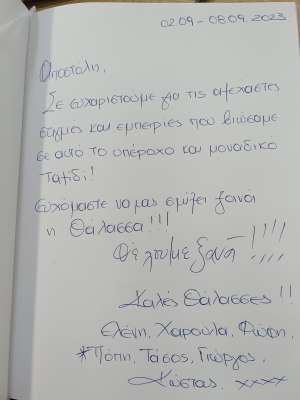 02.09 - 08.09.2023
Αποστόλη,
Σε ευχαριστούμε για τις αξέχαστες
στιγμές και εμπειρίες που βιώσαμε
σε αυτό το υπέροχο και μοναδικό
ταξίδι!
Ευχόμαστε να μας σμίξει ξανά
η θάλασσα!!!
Θέλουμε ξανά!!!!
Καλές Θάλασσες!!
Ελένη, Χαρούλα, Φώφη,
*Πόπη, Τάσος, Γιώργος,
Κώστας. xxxx